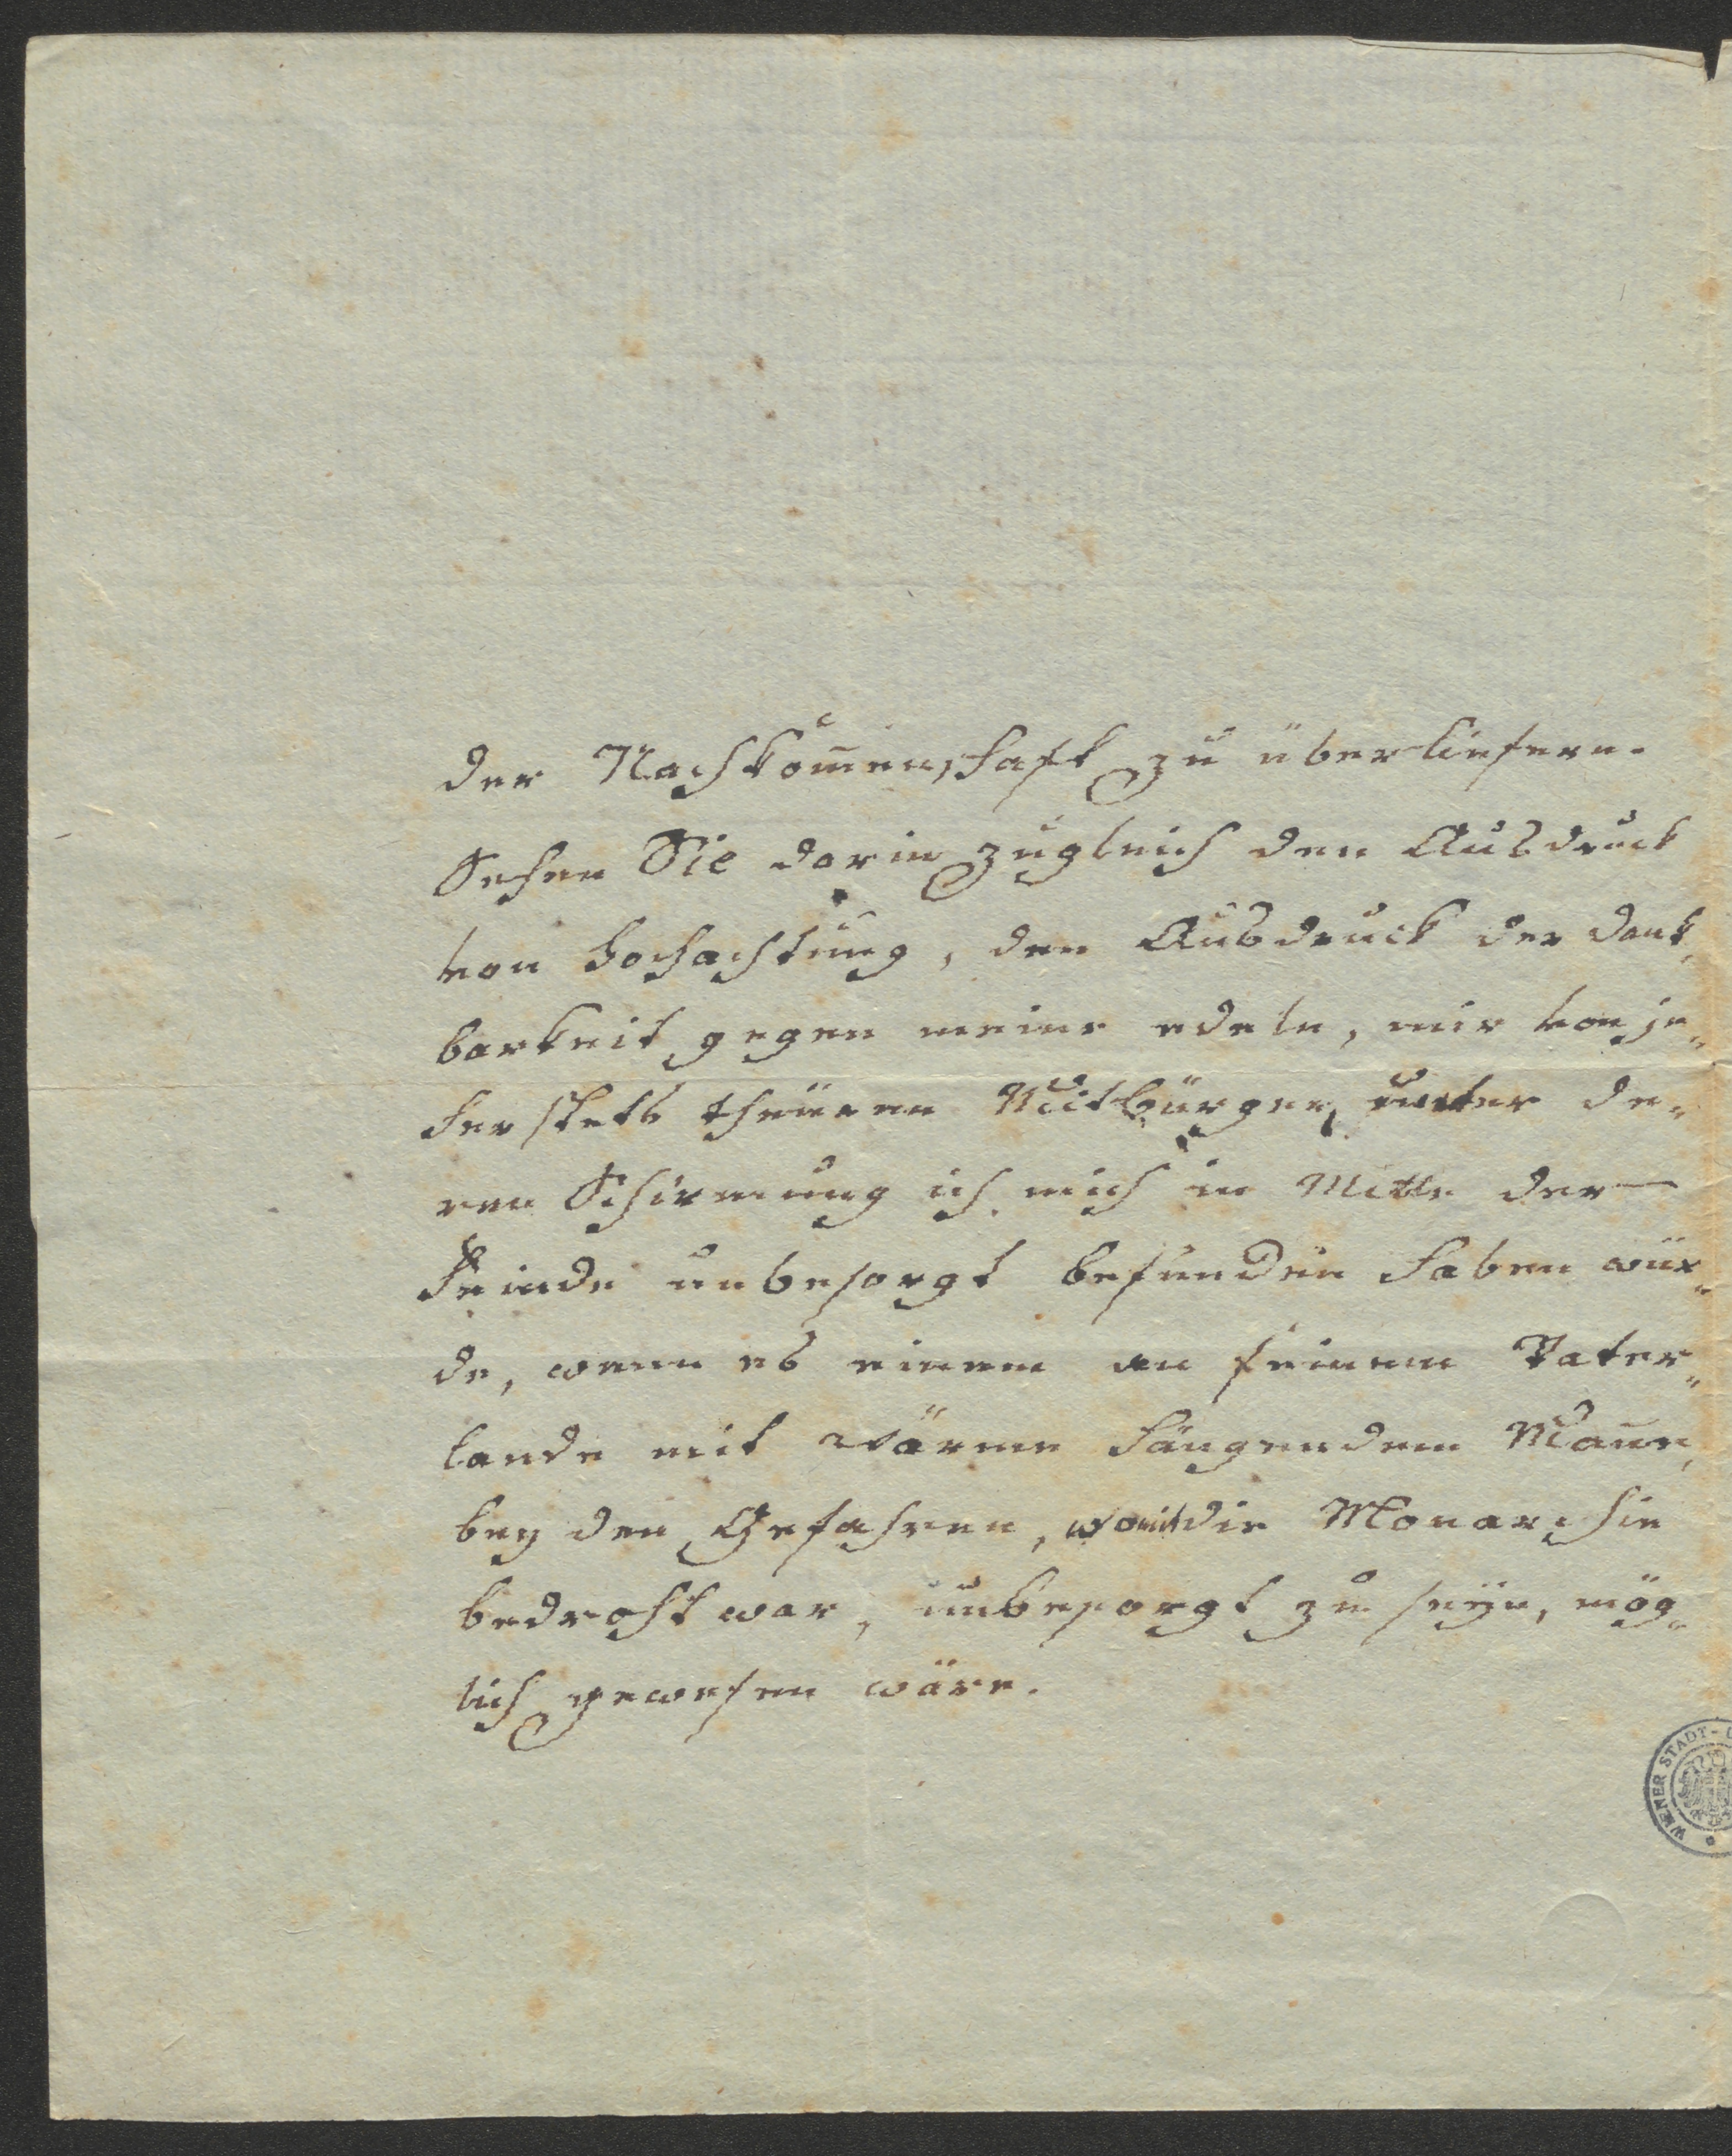 der Nachkom̅enschaft zu überliefern.
Sehen Sie darin zugleich den Ausdruck
von Hochachtung, den Ausdruck der Dank„
barkeit gegen meine edeln, mir von je„
her stets theüren Mitbürger, unter de„
ren Schirmung ich mich in Mitte der
Feinde unbesorgt befunden haben wür„
de, wenn es einem an seinem Vater„
lande mit Wärme hängendem Man̅e,
bey den Gefahren, womit die Monarchie
bedroht war, unbesorgt zu seÿn, mög„
lich gewesen wäre.
WIENER STADT-